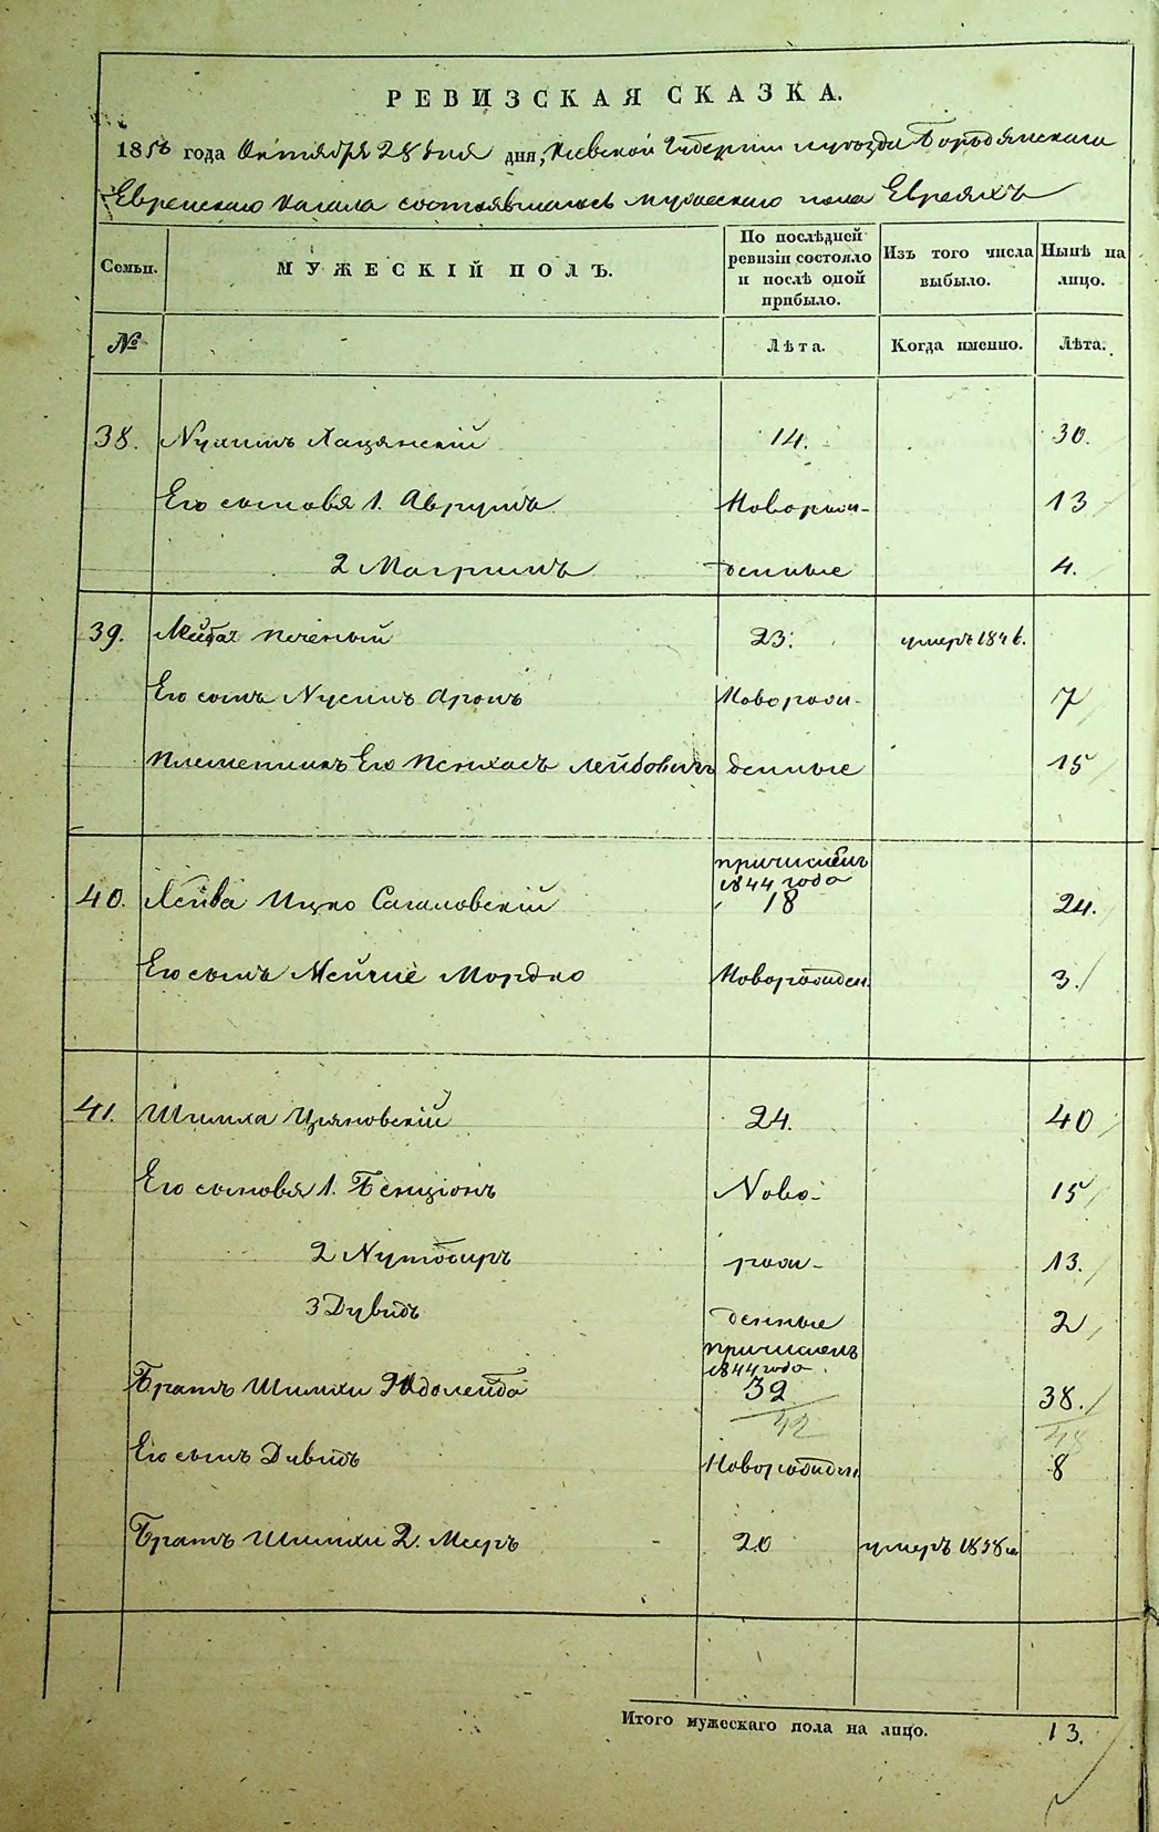 РЕВИЗСКАЯ СКАЗКА.
185 года Октября 28 дня дня, Кіевской Губерніи и уѣзда Бородянскаго
Еврейскаго Кагала состоявшихъ мужескаго пола Евреяхъ
Семьи. МУЖЕСКІЙ ПОЛЪ. По послѣдней ревизіи состояло и послѣ оной прибыло. Изъ того числа выбыло. Нынѣ на лицо.
№ Лѣта. Когда именно. Лѣта.
38. Нухимъ 14. 30.
Его сыновя 1. Аврумъ Новорож- 13
2 денные 4.
39. Печеный 23. умеръ 1846.
Его сынъ Нусинъ Аронъ Новорож- 7
Племенникъ Его Пенхасъ Лейбовичъ денные 15
причисленъ
1844 года
40. Лейба Ицко Сагаловскій 18 24.
Его сынъ Мордко Новорожден. 3.
41. Шимха 24. 40
Его сыновя 1. Бенціонъ Ново- 15
2 рож- 13.
3 Дувидъ денные 2
причисленъ
1844 года
Братъ Шимхи 32 38.
42 48
Его сынъ Дувидъ Новорожден. 8
Братъ Шимхи 2. Мееръ 20 умеръ 1838 г.
Итого мужескаго пола на лицо. 13.